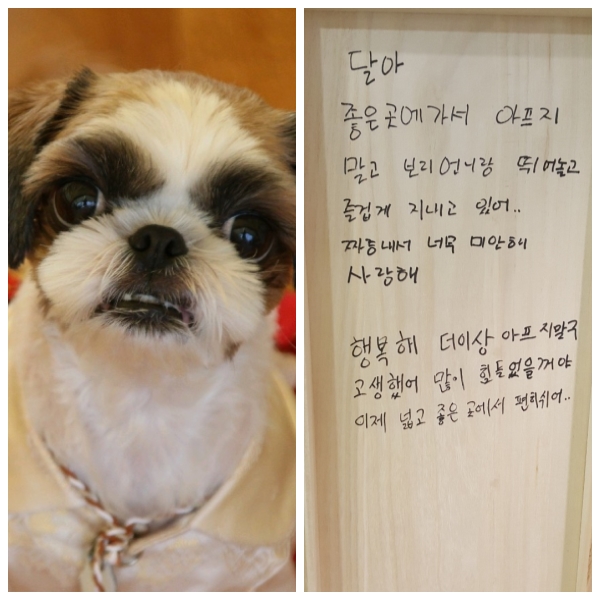 달아
좋은곳에가서 아프지
말고 보리언니랑 뛰어놀고
즐겁게 지내고 있어..
짜증내서 너무 미안해
사랑해
행복해 더이상 아프지말구
고생했어 많이 힘들었을거야
이제 넓고 좋은곳에서 편히쉬어..